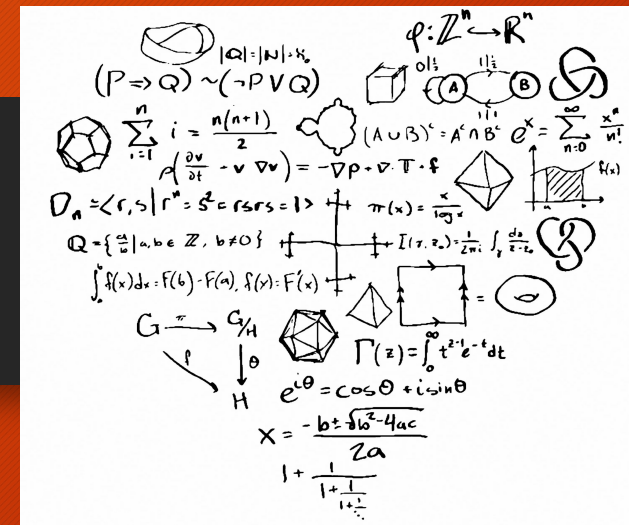 φ: ℤⁿ ↪ ℝⁿ
|ℚ| = |ℕ| = ℵ₀
(P ⇒ Q) ~ (¬P ∨ Q)
0|½ 1|½
A B
1|1
n
∑ i = n(n+1)/2
i=1
(A ∪ B)ᶜ = Aᶜ ∩ Bᶜ
eˣ = ∑_{n=0}^{∞} xⁿ/n!
ρ(∂v/∂t + v · ∇v) = -∇p + ∇ · T + f
f(x)
a b
Dₙ = <r, s | rⁿ = s² = rsrs = 1>
π(x) = x/log x
ℚ = { a/b | a, b ∈ ℤ, b ≠ 0 }
= 1/2πi ∫_γ dz/z-z₀
∫_a^b f(x)dx = F(b) - F(a), f(x) = F'(x)
=
G π G/H
θ
H
Γ(z) = ∫_0^∞ t^{z-1} e^{-t} dt
e^{iθ} = cosθ + i sinθ
x = -b ± √(b² - 4ac) / 2a
1 + 1/(1 + 1/(1 + 1/⋱))